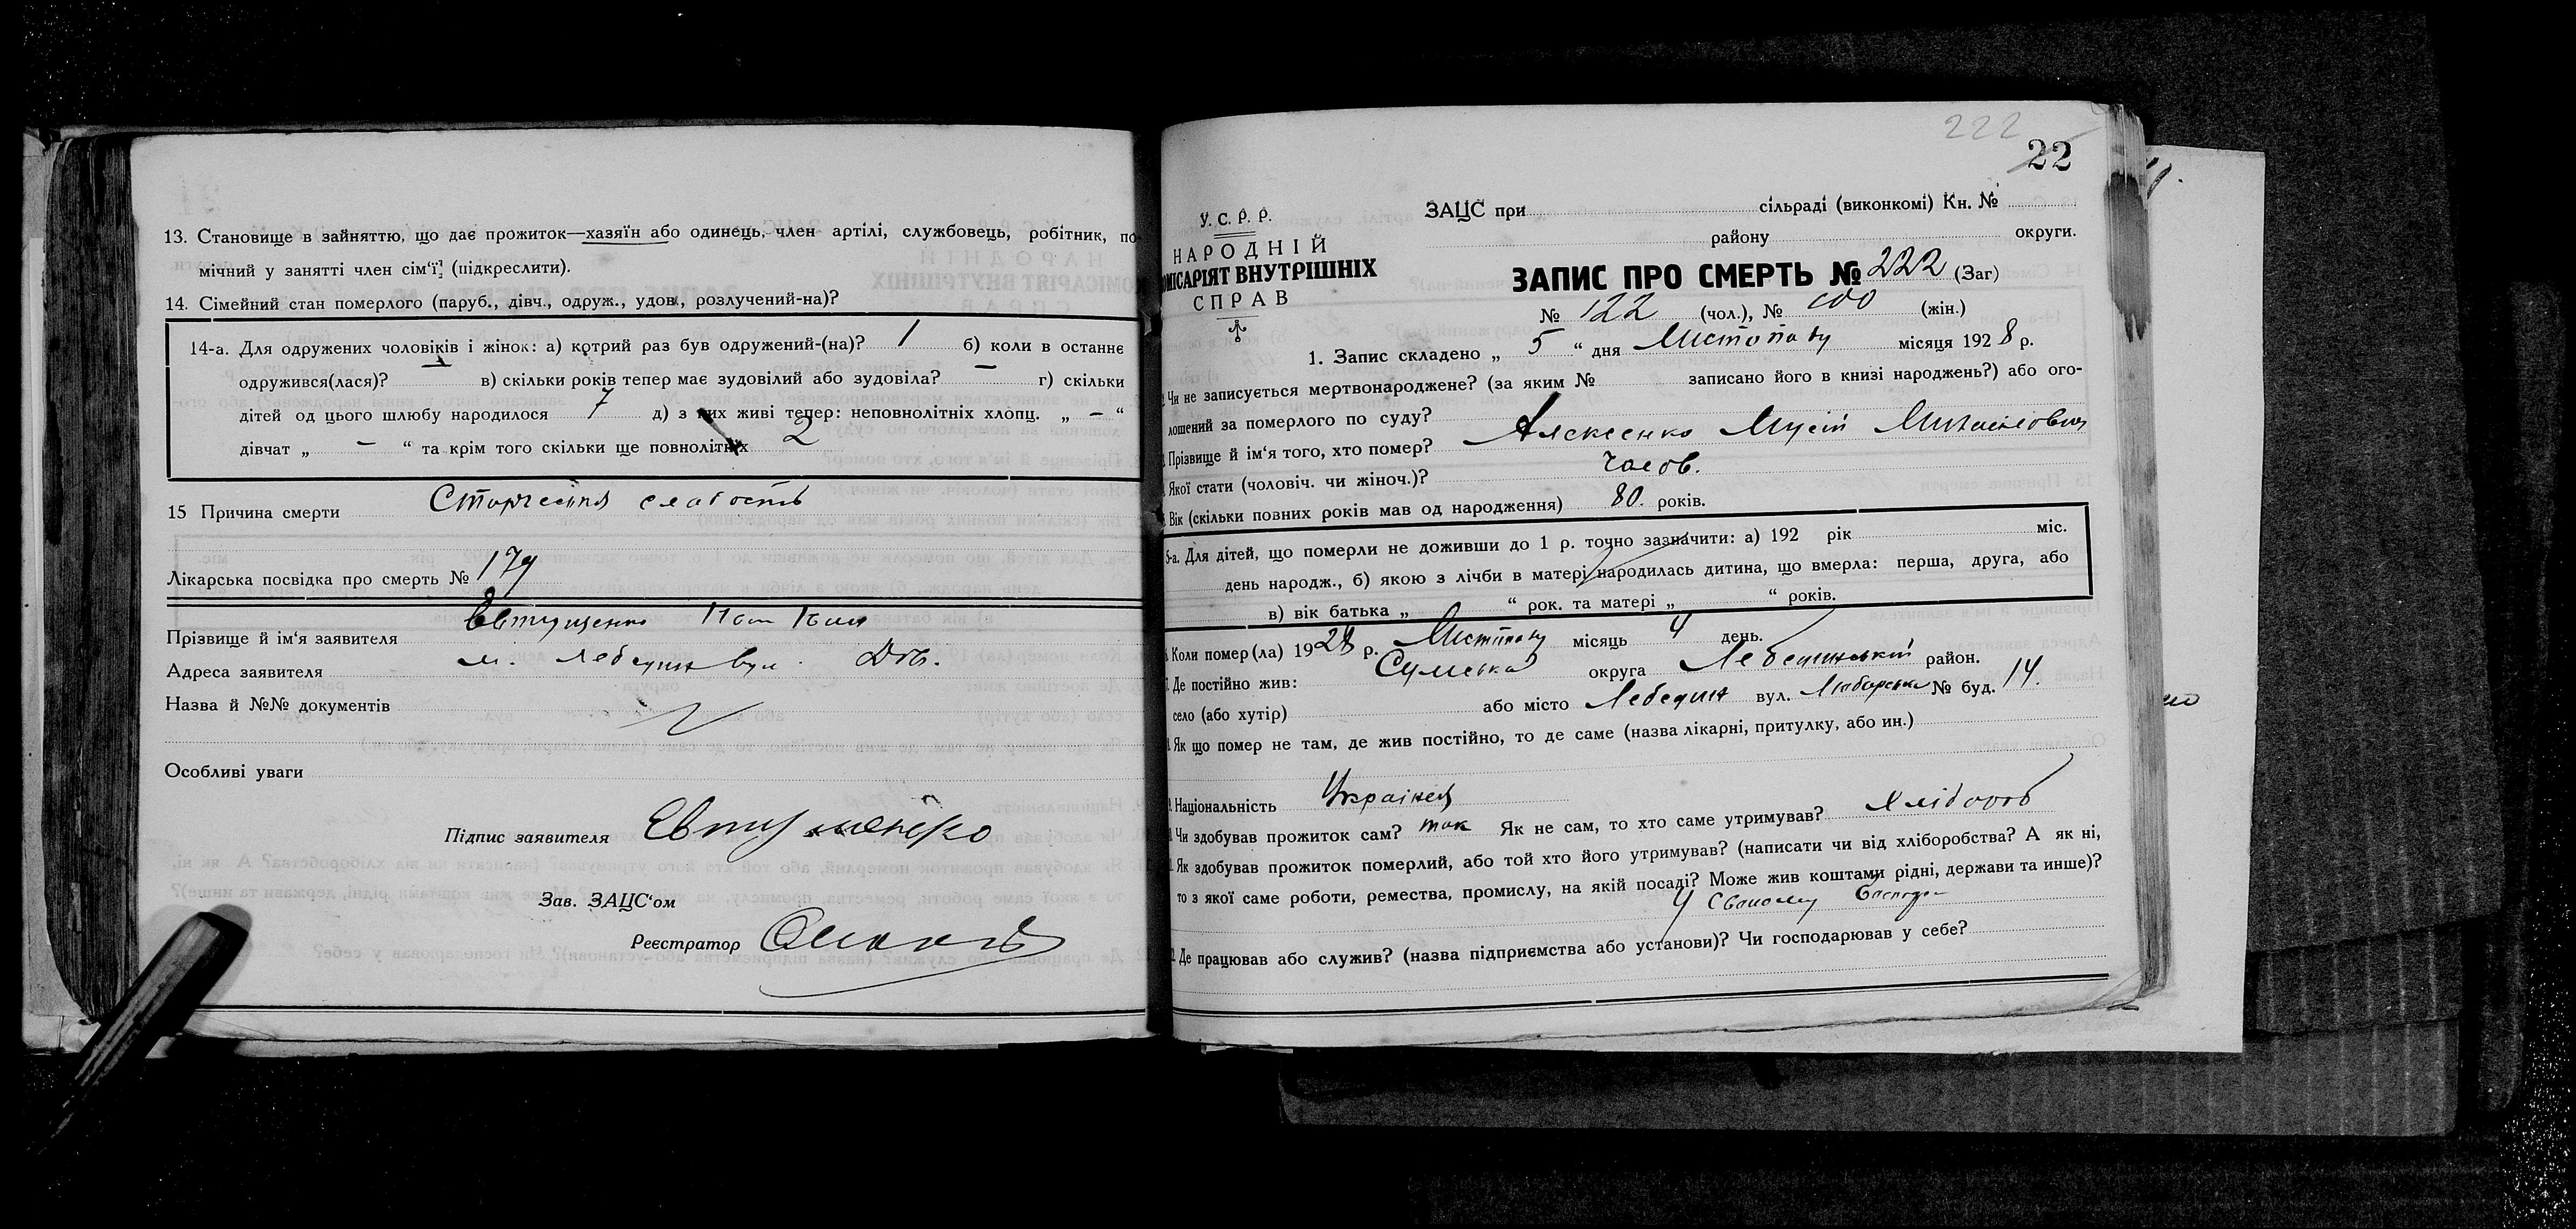 13. Становище в зайняттю, що дає прожиток—хазяїн або одинець, член артілі, службовець, робітник, по-
мічний у занятті член сім'ї (підкреслити).
14. Сімейний стан померлого (паруб., дівч., одруж., удов., розлучений-на)?
14-а. Для одружених чоловіків і жінок: а) котрий раз був одружений-(на)? 1 б) коли в останнє
одружився(лася)? — в) скільки років тепер має зудовілий або зудовіла? — г) скільки
дітей од цього шлюбу народилося 7 д) з них живі тепер: неповнолітніх хлопц. „ — “
дівчат „ — “ та крім того скільки ще повнолітніх 2
15 Причина смерти Старческая слабость
Лікарська посвідка про смерть № 179
Прізвище й ім'я заявителя Євтушенко
Адреса заявителя м. Лебедин вул.
Назва й №№ документів
Особливі уваги
Підпис заявителя Євтушенко
Зав. ЗАЦС'ом
Реєстратор
222
22
У. С. Р. Р.
НАРОДНІЙ
ОМІСАРІЯТ ВНУТРІШНІХ
СПРАВ
ЗАЦС при сільраді (виконкомі) Кн. №
району округи.
ЗАПИС ПРО СМЕРТЬ № 222 (Заг)
№ 122 (чол.), № 100 (жін.)
1. Запис складено „ 5 “ дня Листопаду місяця 1928 р.
Чи не записується мертвонароджене? (за яким № записано його в книзі народжень?) або ого-
лошений за померлого по суду?
Прізвище й ім'я того, хто помер? Алексєнко Мусій Михайлович
Якої стати (чоловіч. чи жіноч.)? Чолов.
Вік (скільки повних років мав од народження) 80. років.
5-а. Для дітей, що померли не доживши до 1 р. точно зазначити: а) 192 рік міс.
день народж., б) якою з лічби в матері народилась дитина, що вмерла: перша, друга, або
в) вік батька „ “ рок. та матері „ “ років.
Коли помер(ла) 1928 р. Листопаду місяць 4 день.
Де постійно жив: Сумська округа Лебединський район.
село (або хутір) або місто Лебедин вул. № буд. 14.
Як що помер не там, де жив постійно, то де саме (назва лікарні, притулку, або ин.)
Національність Українец
Чи здобував прожиток сам? так Як не сам, то хто саме утримував? Хлібороб
Як здобував прожиток померлий, або той хто його утримував? (написати чи від хліборобства? А як ні,
то з якої саме роботи, ремества, промислу, на якій посаді? Може жив коштами рідні, держави та инше)?
У своєму господар
2 Де працював або служив? (назва підприємства або установи)? Чи господарював у себе?